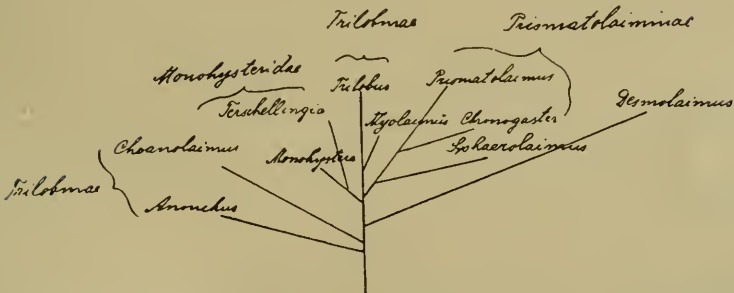 Trilobinae Prismatolaiminae
Monohysteridae Trilobus Prismatolaimus
Terschellingia Desmolaimus
Myolaimus Chronogaster
Choanolaimus Monohystera Sphaerolaimus
Trilobinae
Anonchus